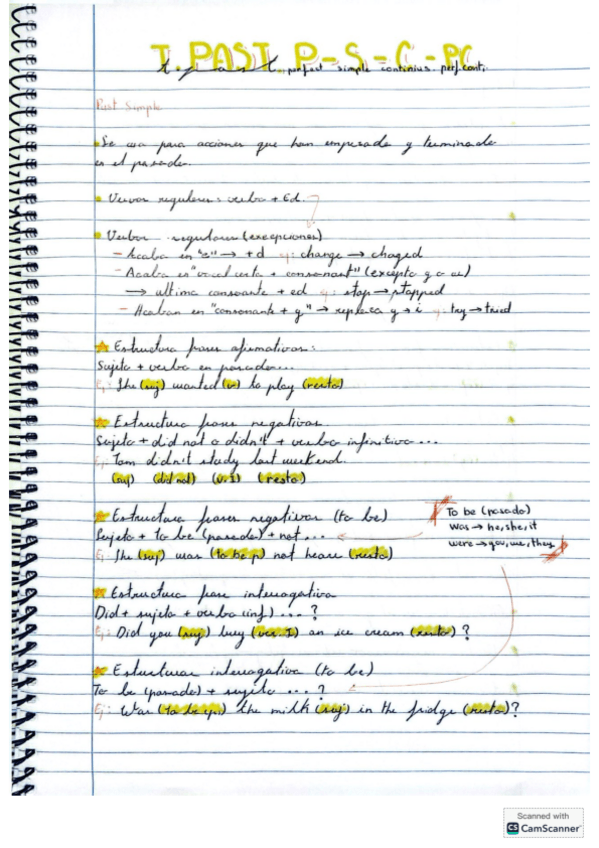 T. PAST P-S-C-PC
t. past. perfect simple continius. perf. conti.
Past Simple
Se usa para acciones que han empesado y terminado
en el pasado.
Verbos regulares: verbo + Ed.
Verbos regulares (excepciones)
- Acaba en "e" → + d ej: change → chaged
- Acaba en "vocal corta + consonant" (excepto y o w)
→ ultima consoante + ed ej: stop → stopped
- Acaban en "consonante + y" → replaza y → i ej: try → tried
Estructura frases afirmativas:
Sujeto + verbo en pasado...
Ej: She (suj) wanted (v) to play (resto)
Estructura frases negativas
Sujeto + did not o didn't + verbo infinitivo...
Ej: Tom didn't study last weekend.
(suj) (did not) (v. I) (resto)
Estructura frases negativas (to be)
Sujeto + to be (pasado) + not...
Ej: She (suj) was (to be p) not heare (resto)
To be (pasado)
Was → he, she, it
were → you, we, they
Estructura frase interrogativa
Did + sujeto + verbo (inf) ...?
Ej: Did you (suj) buy (ver. I) an ice cream (resto)?
Estructuras interrogativa (to be)
To be (pasado) + sujeto ...?
Ej: Was (to be p.) the milk (suj) in the fridge (resto)?
Scanned with
CS CamScanner